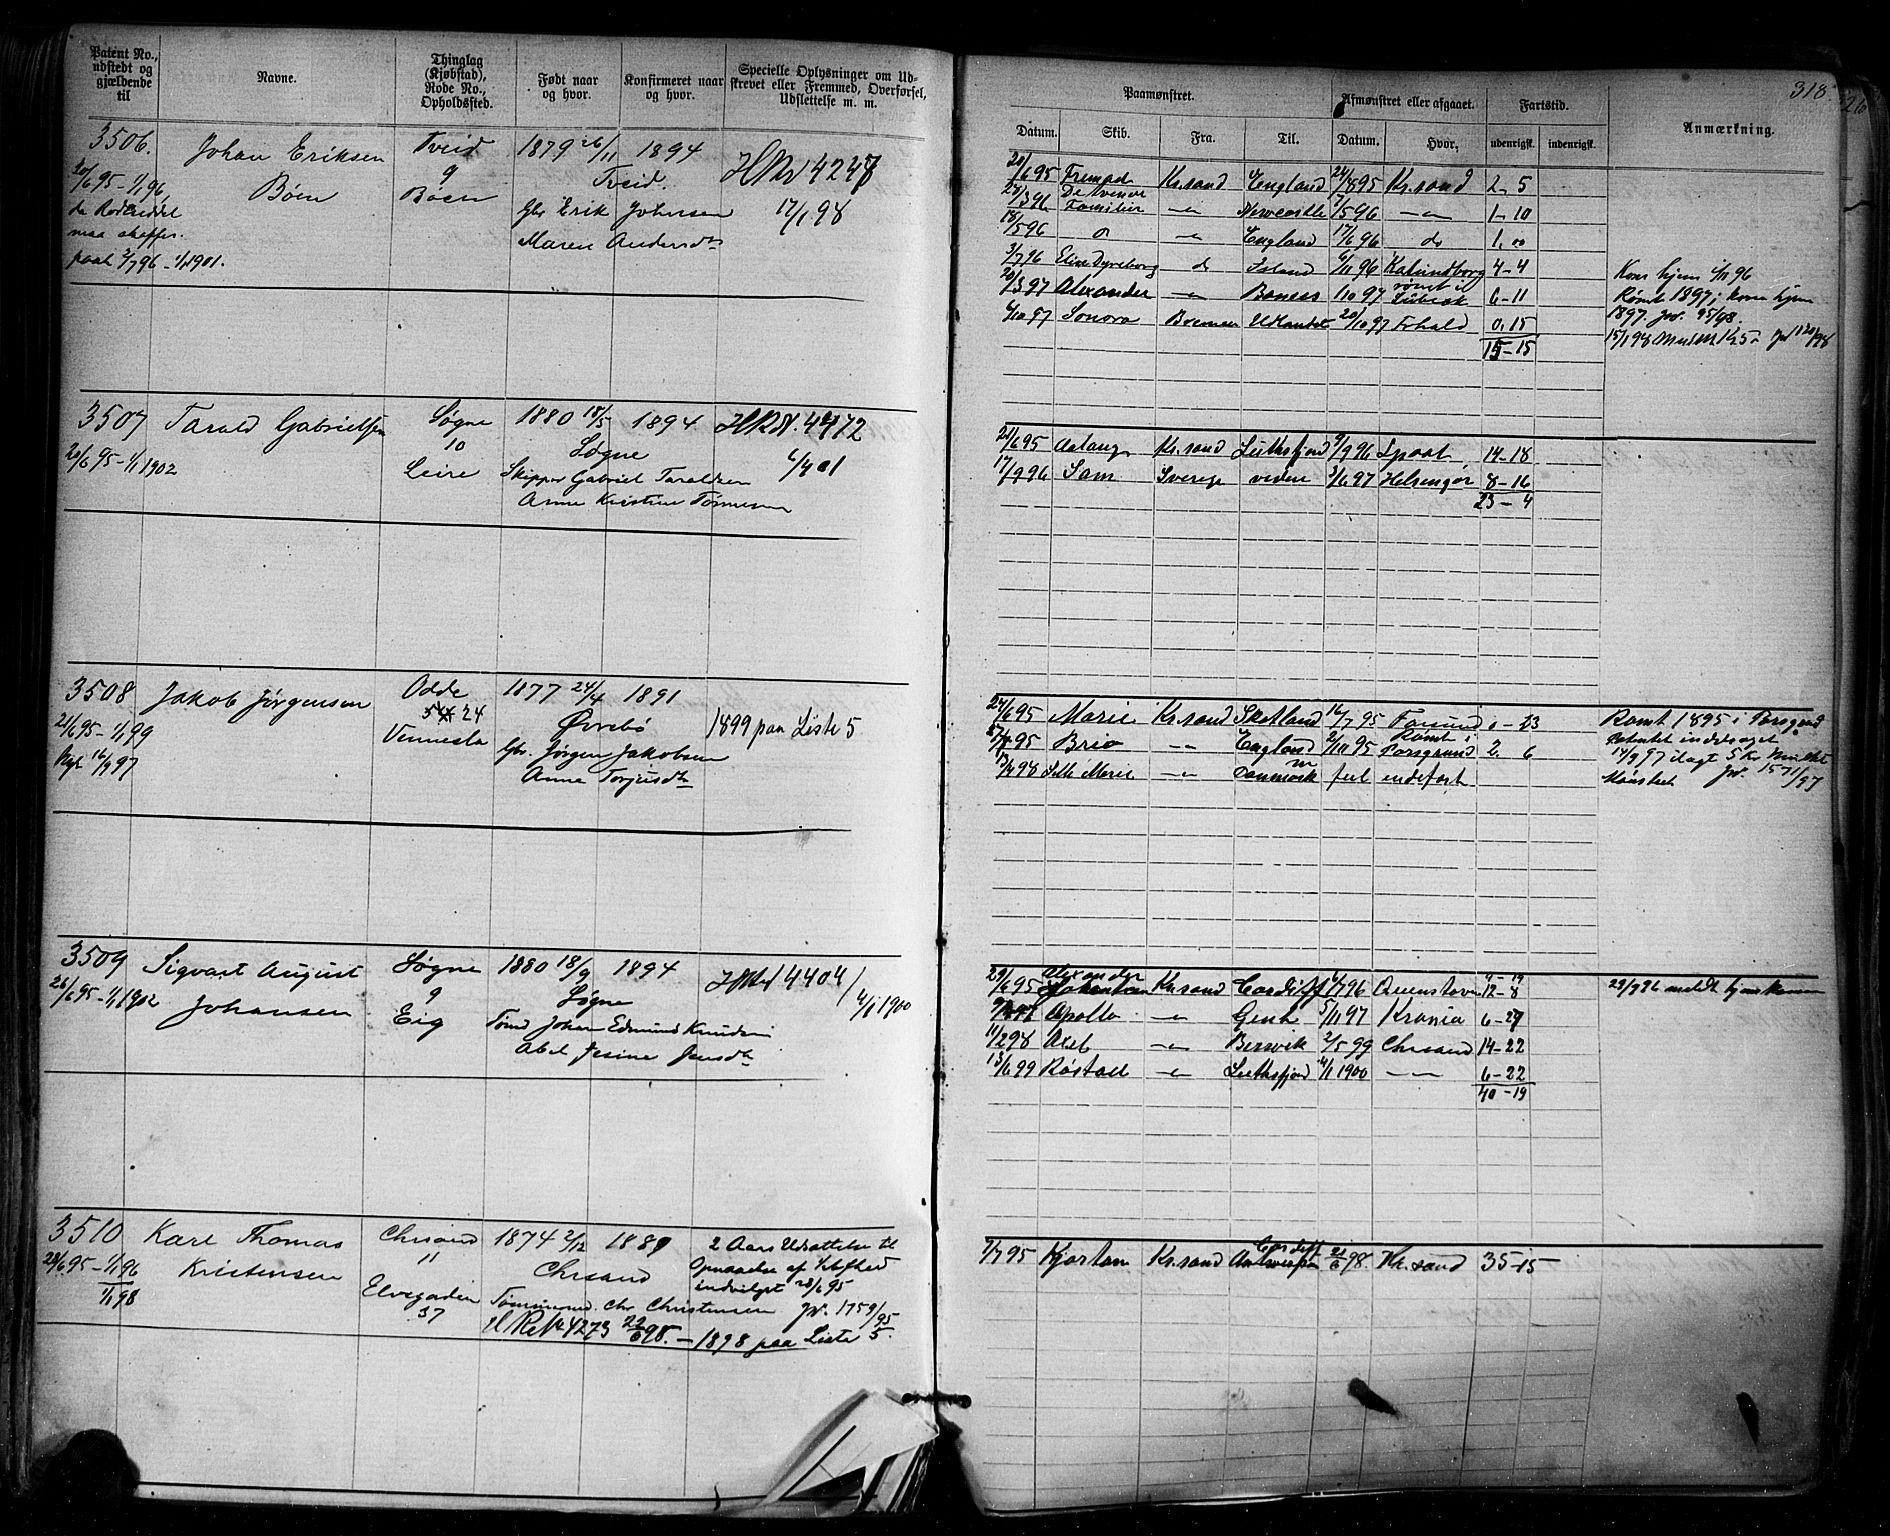 Patent No., udstedt og gjældende til
Navne.
Thinglag (Kjøbstad), Rode No., Opholdssted.
Født naar og hvor.
Konfirmeret naar og hvor.
Specielle Oplysninger om Udskrevet eller Fremmed, Overførsel, Udslettelse m. m.
3506. Johan Eriksen Tveid 1879 26/11 1894
20/6 95 - 1/1 96, Bøen 9 Tveid.
maa skaffes. Bøen Gbr Erik Johnsen 17/1 98
paat 2/7 96 - 1/1 1901. Maren Andersdt
3507 Tarald Gabrielsen Søgne 1880 18/5 1894 4472
20/6 95 - 1/1 1902 10 Søgne 6/4 01
Leire Skipper Gabriel Taraldsen
Anne Kristine Tønnesen
3508 Jakob Jørgensen Odde 1877 24/4 1891
21/6 95 - 1/1 99 24 Øvrebø 1899 paa Liste 5
16/9 97 Vennesla Gbr. Jørgen Jakobsen
Anne Torjusdt
3509 Sigvart August Søgne 1880 18/9 1894 4404
26/6 95 - 1/1 1902 Johansen 9 Søgne 4/1 1900
Eig Tømd Johan Edmund Knudsen
Abel Jesine Jensdt
3510 Karl Thomas Chrsand 1874 2/12 1889 2 Aars Udsættelse til
28/6 95 - 1/1 96 Kristensen 11 Chrsand Opnaaelse af
1/1 98 Elvegaden indvilget 28/6 95
37 Tømmermd. Chr Christensen Jr. 1759/95
4273 22/6 98. - 1898 paa Liste 5.
318.
26
Paamønstret.
Afmønstret eller afgaaet.
Fartstid.
Anmærkning.
Datum. Skib. Fra. Til. Datum. Hvor. udenrigsk. indenrigsk.
20/6 95 Fremad Kr.sand England 24/8 95 Kr.sand 2 - 5
De tvende
Familier Newcastle 7/5 96 1 - 10
18/5 96 England 17/6 96 do 1.00
2/7 96 Elise Dyreborg do Island 6/11 96 Kalundborg 4 - 4 Kom hjem 1/11 96
20/3 97 Alexander 1/10 97 rømt i Lübeck 6 - 11 Rømt 1897; kom hjem
1897. Jr. 95/98.
6/10 97 Sonora Bremen Udlandet 20/10 97 Forhold 0.15 15/1 98
15 - 15
21/6 95 Aslaug Kr.sand Leithsfjord 9/9 96 14 - 18
17/9 96 Sam Sverige videre 3/6 97 Helsingør 8 - 16
23 - 4
24/6 95 Marie Kr.sand Skotland 16/7 95 Farsund 0 - 23 Rømt 1895 i Porsgrund
Patentet inddraget.
Brio England 2/11 95 Rømt i Porsgrund 2. 6 14/9 97 ilagt 5 Kr Mulkt
13/4 98 Lille Marie Danmark feil indført Mønstret Jr. 1571/97
29/6 95 Alexander Kr.sand Cardiff 7/96 12 - 8 23/9 96 meldt hjemkommen
Apollo Gent 5/11 97 Krania 6 - 29
11/2 98 Axel 2/5 99 Chrsand 14 - 22
13/6 99 Røstad Leithsfjord 4/1 1900 6 - 22
40 - 19
1/7 95 Kjartan Kr.sand Cardiff Antwerpen 21/6 98. Kr.sand 35 - 15